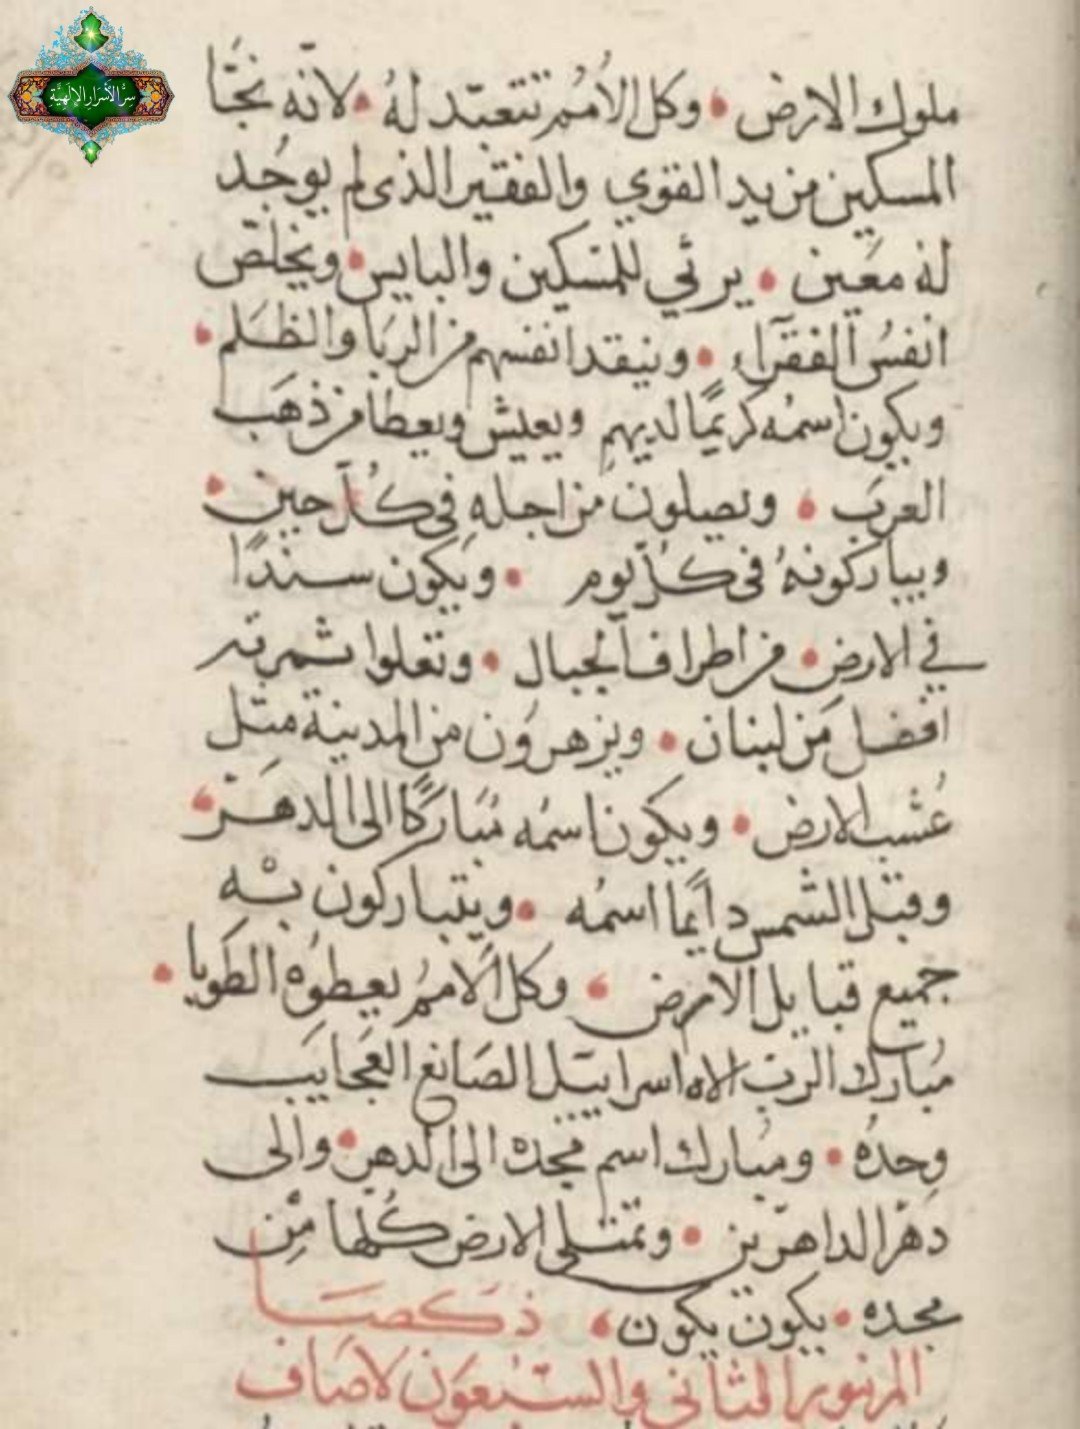 سر الأسرار الإلهية
ملوك الارض • وكل الاُمُم تتعبّد لهُ • لانّه نجَّا
المسكين من يد القوي والفقير الذى لم يوجُد
له مَعَين • يرثي للمسكين والبايس • ويخلّص
انفسُ الفقرآء • وينقد انفسهم من الربَا والظَلم •
ويكون اسمُه كريمًا لديهم ويعيش ويعطا من ذهَب
العرَب • ويصلون من اجله فى كُلّ حين •
ويباركونهُ فى كلّ يوم • ويَكون سندًا
في الارض • في اطراف الجبال • وتعلوا ثمرته
افضل مَن لبنان • ويزهروَن من المدينة متل
عُشب الارض • ويكون اسمُه مُبَاركًا الى الدهَر •
وقبل الشمس دايمًا اسمُه • ويتباركون بْه
جميع قبايل الارض • وكل الاممُ يعطوُه الطَوبا •
مُبارك الرب الاه اسراييل الصَانع العَجَايَب
وحدُه • ومبُارك اسم مجده الى الدهر • والى
دَهر الداهرين • وتمتلى الارض كُلها مِن
مجده • يكون يكون • ذكصَا
المزمور الثاني والسَبُعوَن لاصَاف